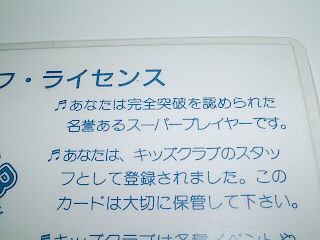 フ・ライセンス
♬あなたは完全突破を認められた
名誉あるスーパープレイヤーです。
♬あなたは、キッズクラブのスタッ
フとして登録されました。この
カードは大切に保管して下さい。
♬キッズクラブは各種イベントや